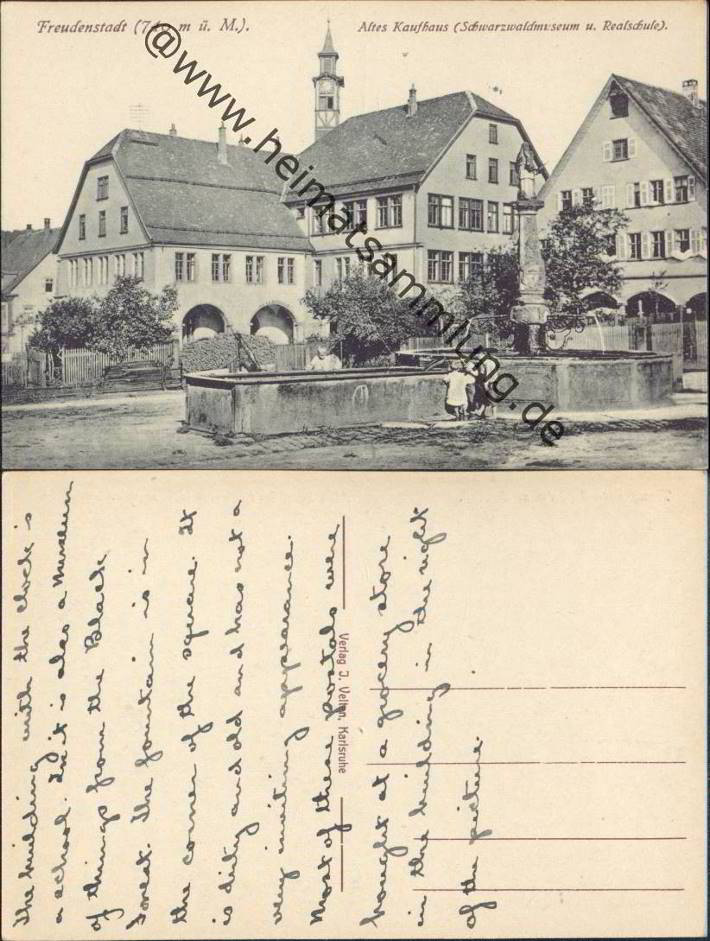 Freudenstadt (74 m ü. M.).
Altes Kaufhaus (Schwarzwaldmuseum u. Realschule).
@www.heimatsammlung.de
The building with the clock is
a school. In it is also a museum
of things from the Black
Forest. The fountain is in
the corner of the square. It
is dirty and old and has not a
very inviting appearance.
Most of these postals were
bought at a grocery store
in the building in the right
of the picture.
Verlag J. Velten, Karlsruhe